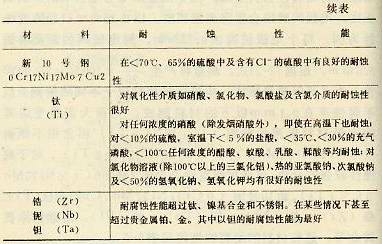 续表
材料 耐蚀性能
新10号钢 在<70℃、65%的硫酸中及含有Cl⁻的硫酸中有良好的耐蚀
0Cr17Ni17Mo7Cu2 性
钛 对氧化性介质如硝酸、氯化物、氯酸盐及含氯介质的耐蚀性
(Ti) 很好
对任何浓度的硝酸(除发烟硝酸外),即使在高温下也耐蚀;
对<10%的硫酸,室温下<5%的盐酸,<35℃、<30%的充气
磷酸,<100℃任何浓度的醋酸、蚁酸、乳酸、鞣酸等均耐蚀;对
氯化物溶液(除100℃以上的三氯化铝)、热的亚氯酸钠、次氯酸钠
及<50%的氢氧化钠、氢氧化钾均有很好的耐蚀性
锆(Zr) 耐腐蚀性能超过钛、镍基合金和不锈钢。在某些情况下甚至
铌(Nb) 超过贵金属铂、金。其中以钽的耐腐蚀性能为最好
钽(Ta)